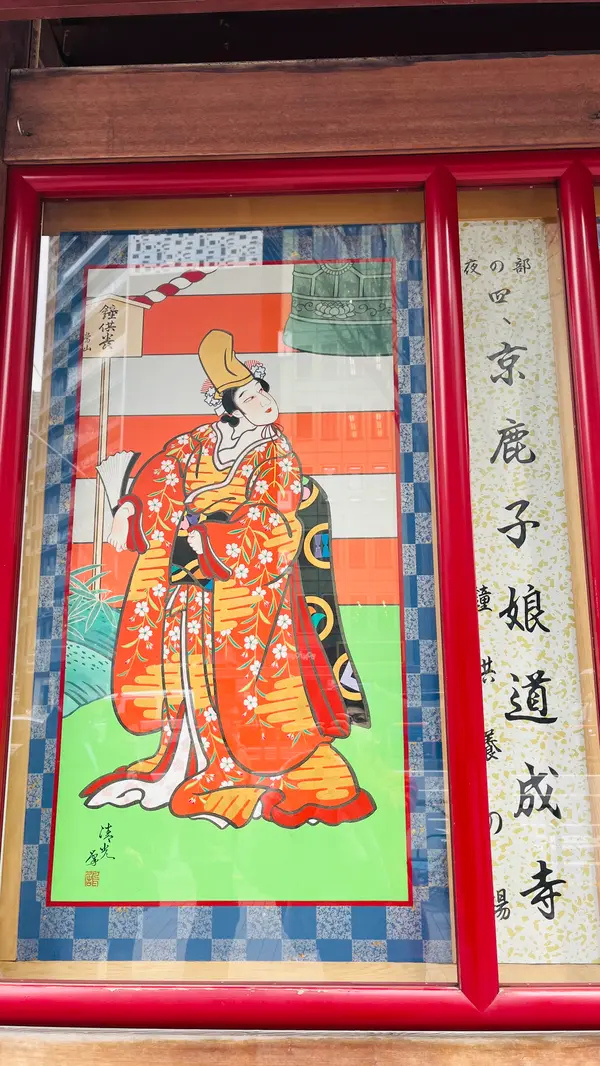 夜の部
四、京鹿子娘道成寺
鐘供養の場
鐘供養
當山
清光
筆